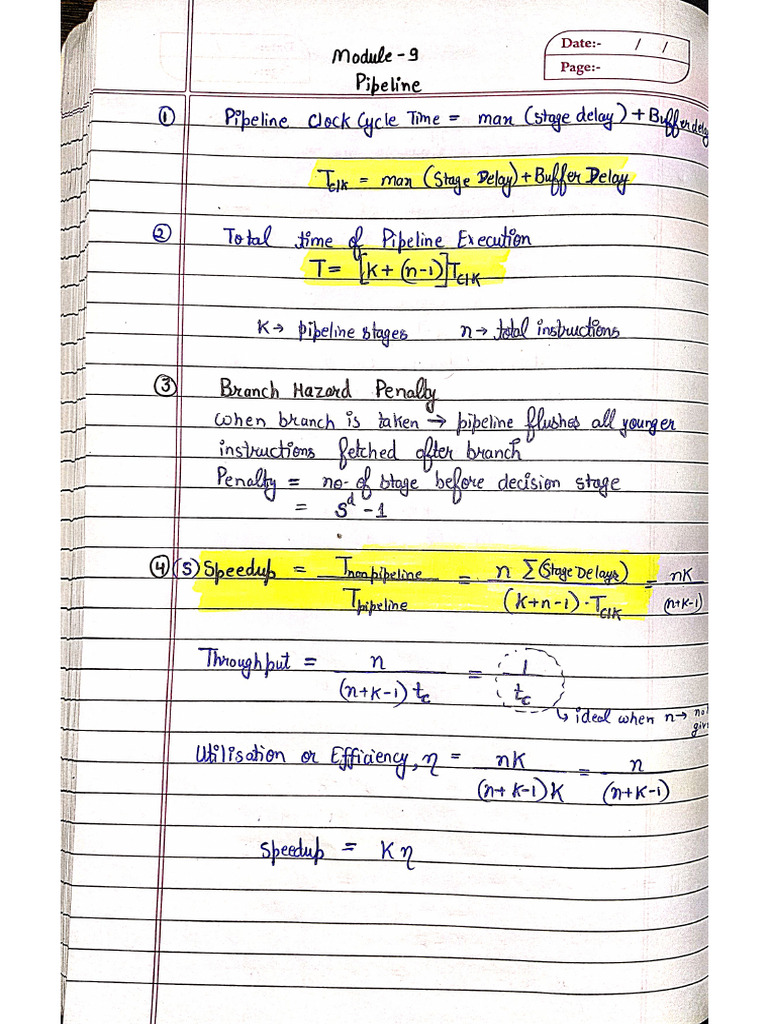 Module - 9
Pipeline
Date:- / /
Page:-
① Pipeline Clock Cycle Time = max (stage delay) + Buffer delay
Tclk = max (Stage Delay) + Buffer Delay
② Total time of Pipeline Execution
T = [K + (n-1)] TCLK
K → pipeline stages n → total instructions
③ Branch Hazard Penalty
when branch is taken → pipeline flushes all younger
instructions fetched after branch
Penalty = no. of stage before decision stage
= Sᵈ - 1
④ (S) Speedup = Tnonpipeline / Tpipeline = n Σ(Stage Delays) / (K+n-1) · TCLK = nK / (n+K-1)
Throughput = n / (n+K-1) tc = 1 / tc
↳ ideal when n → not given
Utilisation or Efficiency, η = nK / (n+K-1)K = n / (n+K-1)
Speedup = Kη